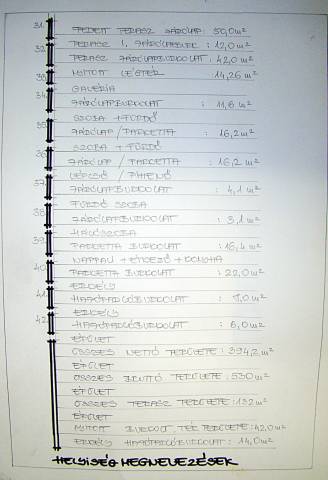 31 FEDETT TERASZ JÁRÓLAP: 50,0 m²
32 TERASZ 1. JÁRÓLAPBURK: 12,0 m²
TERASZ JÁRÓLAPBURKOLAT: 42,0 m²
33 NYITOTT LÉGTÉR 14,26 m²
34 GALÉRIA
JÁRÓLAPBURKOLAT : 11,8 m²
SZOBA + FÜRDŐ
35 JÁRÓLAP / PARKETTA : 16,2 m²
SZOBA + FÜRDŐ
36 JÁRÓLAP / PARKETTA : 16,2 m²
LÉPCSŐ / PIHENŐ
37 JÁRÓLAPBURKOLAT : 4,1 m²
FÜRDŐ SZOBA
38 JÁRÓLAPBURKOLAT : 3,1 m²
HÁLÓSZOBA
39 PARKETTA BURKOLAT : 16,4 m²
NAPPALI + ÉTKEZŐ + KONYHA
40 PARKETTA BURKOLAT : 22,0 m²
ERKÉLY
41 HAJÓPADLÓBURKOLAT : 7,0 m²
ERKÉLY
42 HAJÓPADLÓBURKOLAT : 6,0 m²
ÉPÜLET
ÖSSZES NETTÓ TERÜLETE : 394,2 m²
ÉPÜLET
ÖSSZES BRUTTÓ TERÜLETE : 530 m²
ÉPÜLET
ÖSSZES TERASZ TERÜLETE : 132 m²
ÉPÜLET
NYITOTT BURKOLT TÉR TERÜLETE : 42,0 m²
ERKÉLY HAJÓPADLÓBURKOLAT : 14,0 m²
HELYISÉG MEGNEVEZÉSEK